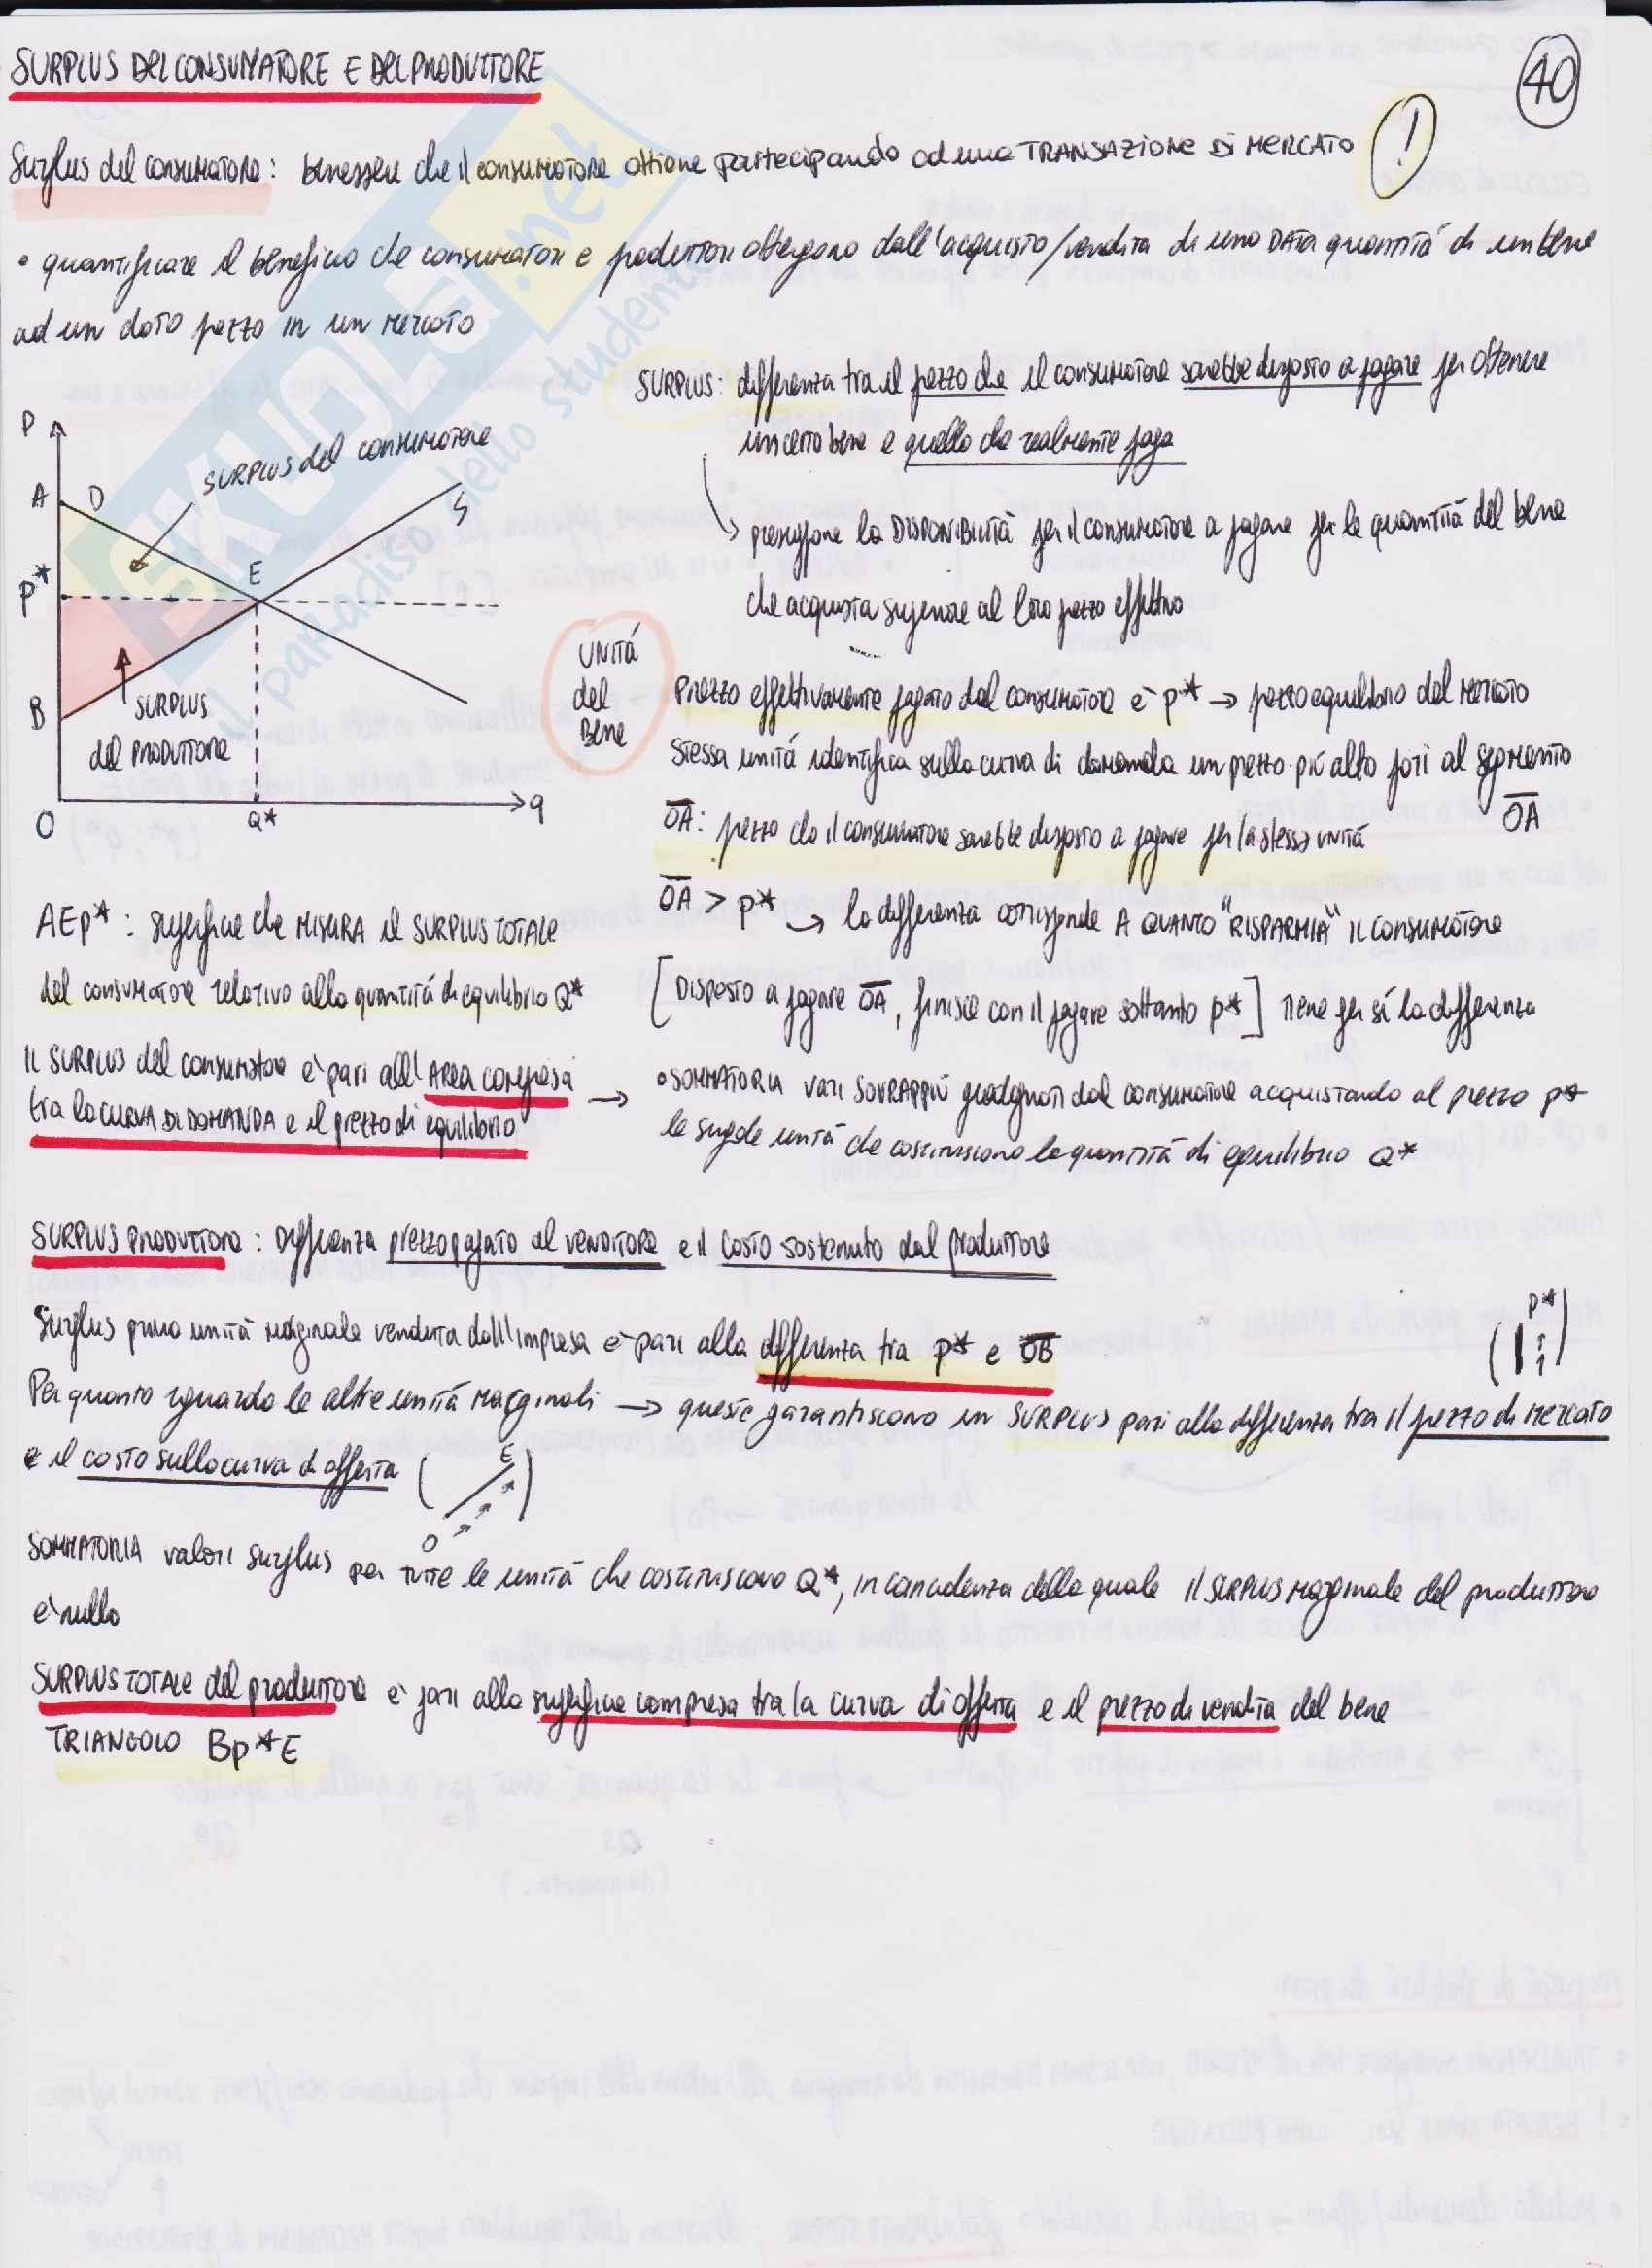 SURPLUS DEL CONSUMATORE E DEL PRODUTTORE
40
Surplus del consumatore: benessere che il consumatore ottiene partecipando ad una TRANSAZIONE DI MERCATO !
• quantificare il beneficio che consumatori e produttori ottengono dall'acquisto/vendita di una DATA quantità di un bene
ad un dato prezzo in un mercato
SURPLUS: differenza tra il prezzo che il consumatore sarebbe disposto a pagare per ottenere
un certo bene e quello che realmente paga
→ presuppone la DISPONIBILITÀ per il consumatore a pagare per le quantità del bene
che acquista superiore al loro prezzo effettivo
P
A
D
SURPLUS del consumatore
S
P*
E
B
SURPLUS
del PRODUTTORE
O
Q*
q
UNITÁ
del
Bene
Prezzo effettivamente pagato dal consumatore è P* → prezzo equilibrio del mercato
stessa unitá identifica sulla curva di domanda un prezzo più alto pari al segmento
OA
OA: prezzo che il consumatore sarebbe disposto a pagare per la stessa unitá
OA > P* → la differenza corrisponde A QUANTO "RISPARMIA" il consumatore
[Disposto a pagare OA, finisce con il pagare soltanto P*] tiene per sé la differenza
AEP*: superficie che MISURA il SURPLUS TOTALE
del consumatore relativo alla quantitá di equilibrio Q*
Il SURPLUS del consumatore è pari all'AREA compresa
tra la CURVA DI DOMANDA e il prezzo di equilibrio
→ • SOMMATORIA vari SOVRAPPIÙ guadagnati dal consumatore acquistando al prezzo P*
le singole unitá che costituiscono la quantitá di equilibrio Q*
SURPLUS PRODUTTORE: Differenza prezzo pagato al venditore e il costo sostenuto dal produttore
Surplus prima unità marginale venduta dall'impresa è pari alla differenza tra P* e OB
P*
Per quanto riguardo le altre unità marginali → queste garantiscono un SURPLUS pari alla differenza tra il prezzo di mercato
e il costo sulla curva di offerta
E
O
SOMMATORIA valori surplus per tutte le unità che costituiscono Q*, in coincidenza della quale il SURPLUS marginale del produttore
è nullo
SURPLUS TOTALE del produttore è pari alla superficie compresa tra la curva di offerta e il prezzo di vendita del bene
TRIANGOLO BP*E
SKUOLA.net
il paradiso dello studente